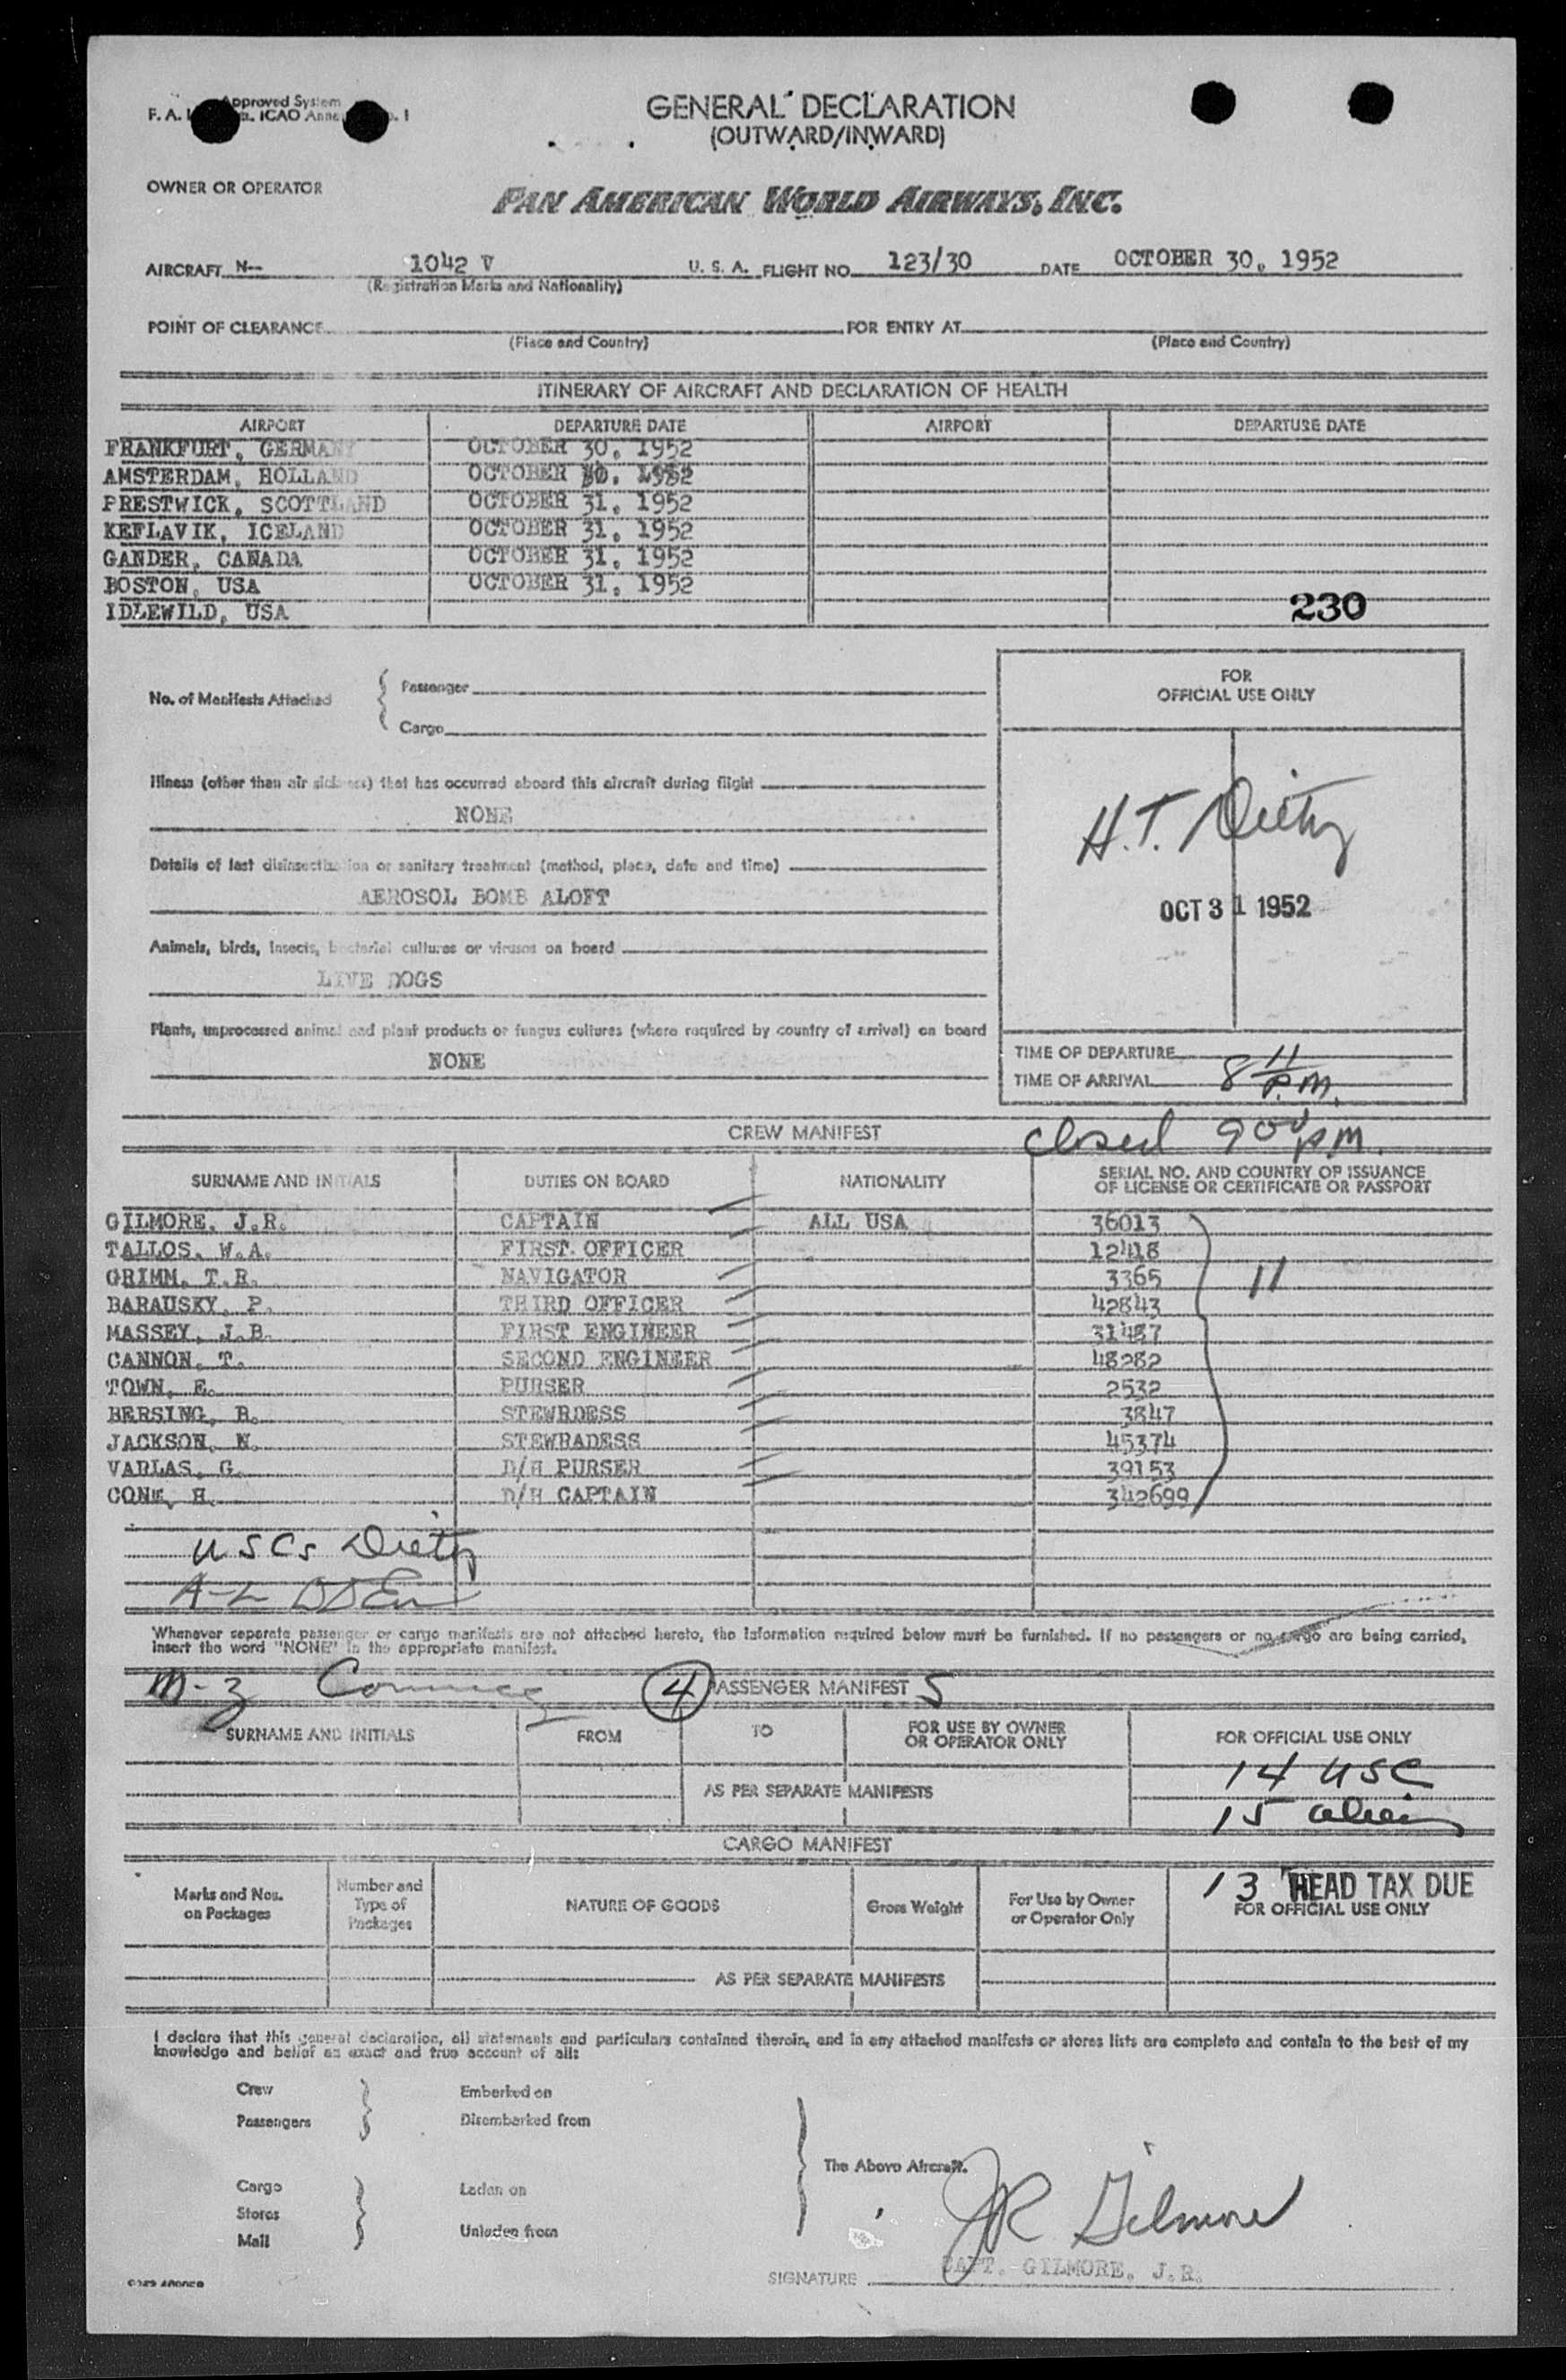 Approved System
F. A. L. ICAO Anne
GENERAL DECLARATION
(OUTWARD/INWARD)
OWNER OR OPERATOR
PAN AMERICAN WORLD AIRWAYS, INC.
AIRCRAFT N-- 1042 V U. S. A. FLIGHT NO. 123/30 DATE OCTOBER 30, 1952
(Registration Marks and Nationality)
POINT OF CLEARANCE FOR ENTRY AT
(Place and Country) (Place and Country)
ITINERARY OF AIRCRAFT AND DECLARATION OF HEALTH
AIRPORT DEPARTURE DATE AIRPORT DEPARTURE DATE
FRANKFURT, GERMANY OCTOBER 30, 1952
AMSTERDAM, HOLLAND OCTOBER 30, 1952
PRESTWICK, SCOTTLAND OCTOBER 31, 1952
KEFLAVIK, ICELAND OCTOBER 31, 1952
GANDER, CANADA OCTOBER 31, 1952
BOSTON, USA OCTOBER 31, 1952
IDLEWILD, USA
230
No. of Manifests Attached
Passenger
Cargo
FOR
OFFICIAL USE ONLY
Illness (other than air sickness) that has occurred aboard this aircraft during flight
NONE
Details of last disinsectization or sanitary treatment (method, place, date and time)
AEROSOL BOMB ALOFT
Animals, birds, insects, bacterial cultures or viruses on board
LIVE DOGS
Plants, unprocessed animal and plant products or fungus cultures (where required by country of arrival) on board
NONE
H.T. Dietz
OCT 31 1952
TIME OF DEPARTURE
TIME OF ARRIVAL 8 11 P.M.
closed 9 00 p.m.
CREW MANIFEST
SURNAME AND INITIALS DUTIES ON BOARD NATIONALITY SERIAL NO. AND COUNTRY OF ISSUANCE
OF LICENSE OR CERTIFICATE OR PASSPORT
GILMORE, J.R. CAPTAIN ALL USA 36013
TALLOS, W.A. FIRST OFFICER 12418
GRIMM, T.R. NAVIGATOR 3365 11
BARAUSKY, P. THIRD OFFICER 42843
MASSEY, J.B. FIRST ENGINEER 31487
CANNON, T. SECOND ENGINEER 48282
TOWN, E. PURSER 2532
BERSING, B. STEWRDESS 3847
JACKSON, N. STEWRADESS 45374
VARLAS, G. D/H PURSER 39153
CONE, H. D/H CAPTAIN 342699
USCs Dietz
A-L
Whenever separate passenger or cargo manifests are not attached hereto, the information required below must be furnished. If no passengers or no cargo are being carried,
insert the word "NONE" in the appropriate manifest.
M-Z 4 PASSENGER MANIFEST 5
SURNAME AND INITIALS FROM TO FOR USE BY OWNER
OR OPERATOR ONLY FOR OFFICIAL USE ONLY
14 USC
AS PER SEPARATE MANIFESTS
15 alien
CARGO MANIFEST
Marks and Nos.
on Packages
Number and
Type of
Packages
NATURE OF GOODS Gross Weight
For Use by Owner
or Operator Only
13 HEAD TAX DUE
FOR OFFICIAL USE ONLY
AS PER SEPARATE MANIFESTS
I declare that this general declaration, all statements and particulars contained therein, and in any attached manifests or stores lists are complete and contain to the best of my
knowledge and belief an exact and true account of all:
Crew Embarked on
Passengers Disembarked from
The Above Aircraft.
Cargo Laden on
Stores
Mail Unladen from
JR Gilmore
SIGNATURE CAPT. GILMORE, J.R.